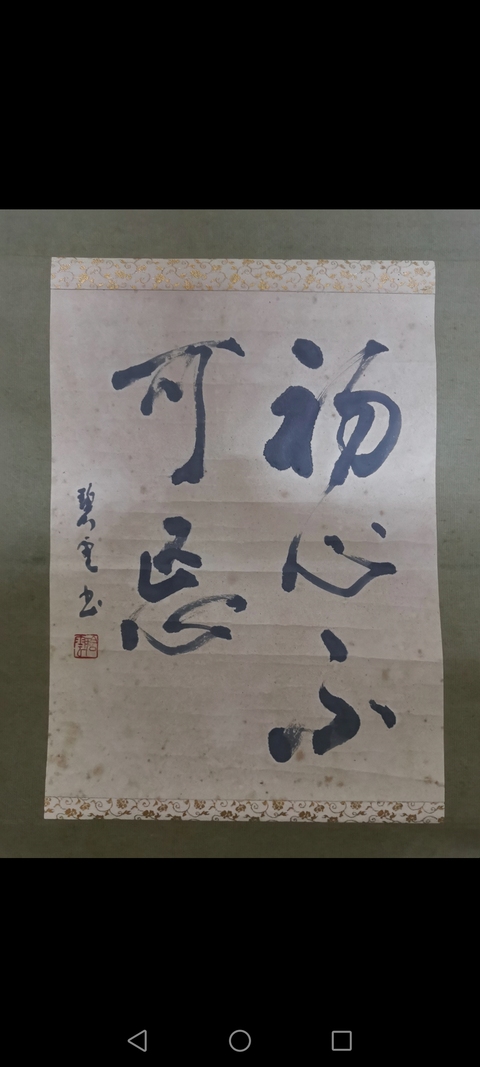 初心不
可忘
碧雲書